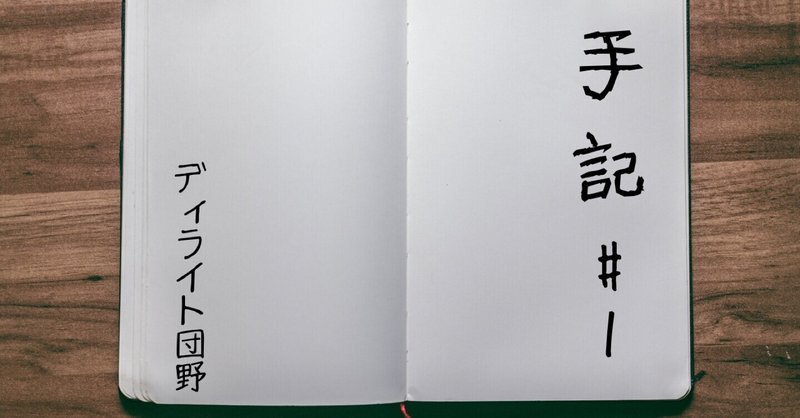 手記#1
ディライト団野